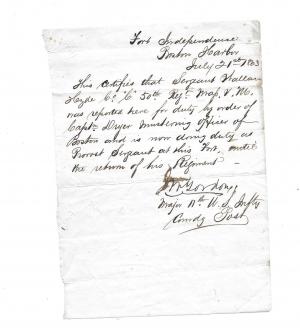 Fort Independence
Boston Harbor
July 21st 1863
This certifies that Sergeant Wallace
Hyde Co. "C" 50th Regt. Mass. V. M.
was reported here for duty by order of
Capt. Dryer Mustering Officer of
Boston and is now doing duty as
Provost Sergeant at this Fort, until
the return of his Regiment
Gordon
Major 11th U. S. Infty
Comdg Post